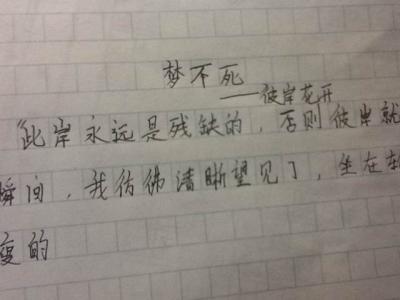 梦不死
——彼岸花开
"此岸永远是残缺的，否则彼岸就
瞬间，我仿佛清晰望见了，坐在
度的